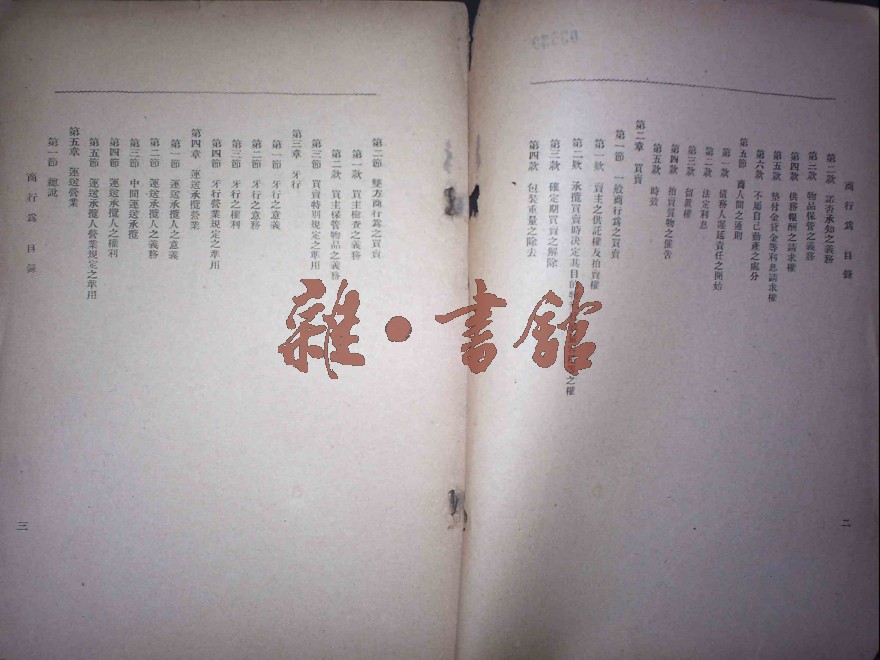 商行爲目錄
第二款 諾否承知之義務
第三款 物品保管之義務
第四款 供務報酬之請求權
第五款 墊付金貸金等利息請求權
第六款 不屬自己動產之處分
第五節 商人間之通則
第一款 債務人遲延責任之開始
第二款 法定利息
第三款 留置權
第四款 拍賣質物之催告
第五款 時效
第二章 買賣
第一節 一般商行爲之買賣
第一款 賣主之供託權及拍賣權
第二款 承攬買賣時決定其目的物 之權
第三款 確定期買賣之解除
第四款 包裝重量之除去
二
第二節 雙方商行爲之買賣
第一款 買主檢查之義務
第二款 買主保管物品之義務
第三節 買賣特別規定之準用
第三章 牙行
第一節 牙行之意義
第二節 牙行之義務
第三節 牙行之權利
第四節 牙行營業規定之準用
第四章 運送承攬營業
第一節 運送承攬人之意義
第二節 運送承攬人之義務
第三節 中間運送承攬
第四節 運送承攬人之權利
第五節 運送承攬人營業規定之準用
第五章 運送營業
第一節 總說
商行爲目錄
三
雜·書館